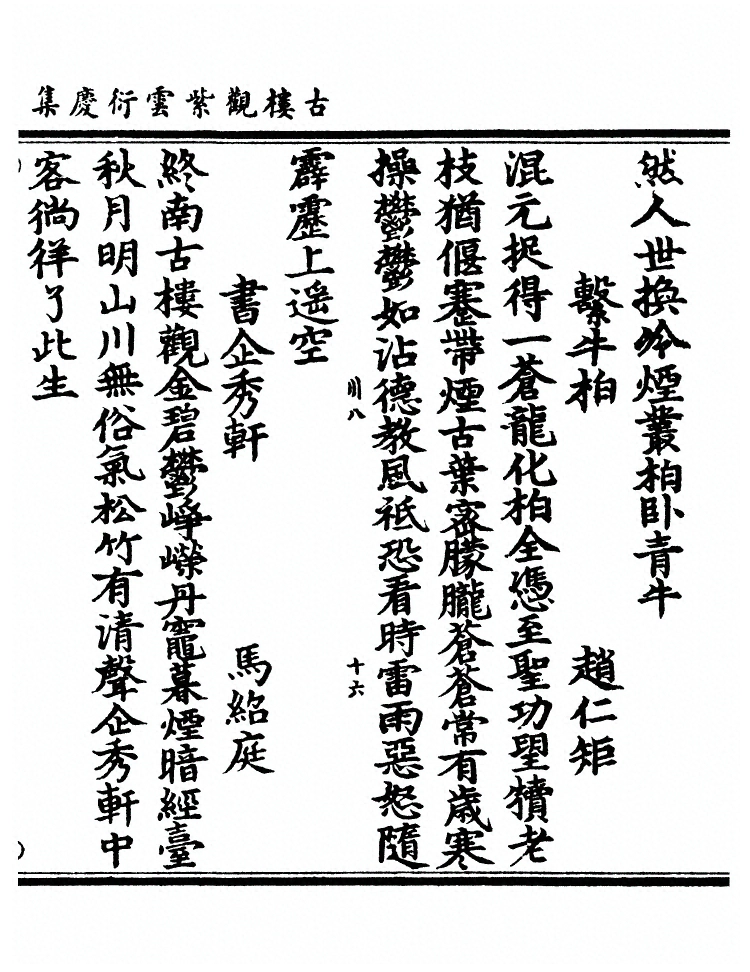 古樓觀紫雲衍慶集
然人世換冷煙叢柏卧青牛
繫牛柏 趙仁矩
混元捉得一蒼龍化柏全憑至聖功望犢老
枝猶偃蹇帶煙古葉密朦朧蒼蒼常有歲寒
操鬱鬱如沾德教風祗恐看時雷雨惡怒隨
川八 十六
霹靂上遥空
書企秀軒 馬紹庭
終南古樓觀金碧鬱崢嶸丹竈暮煙暗經臺
秋月明山川無俗氣松竹有清聲企秀軒中
客徜徉了此生